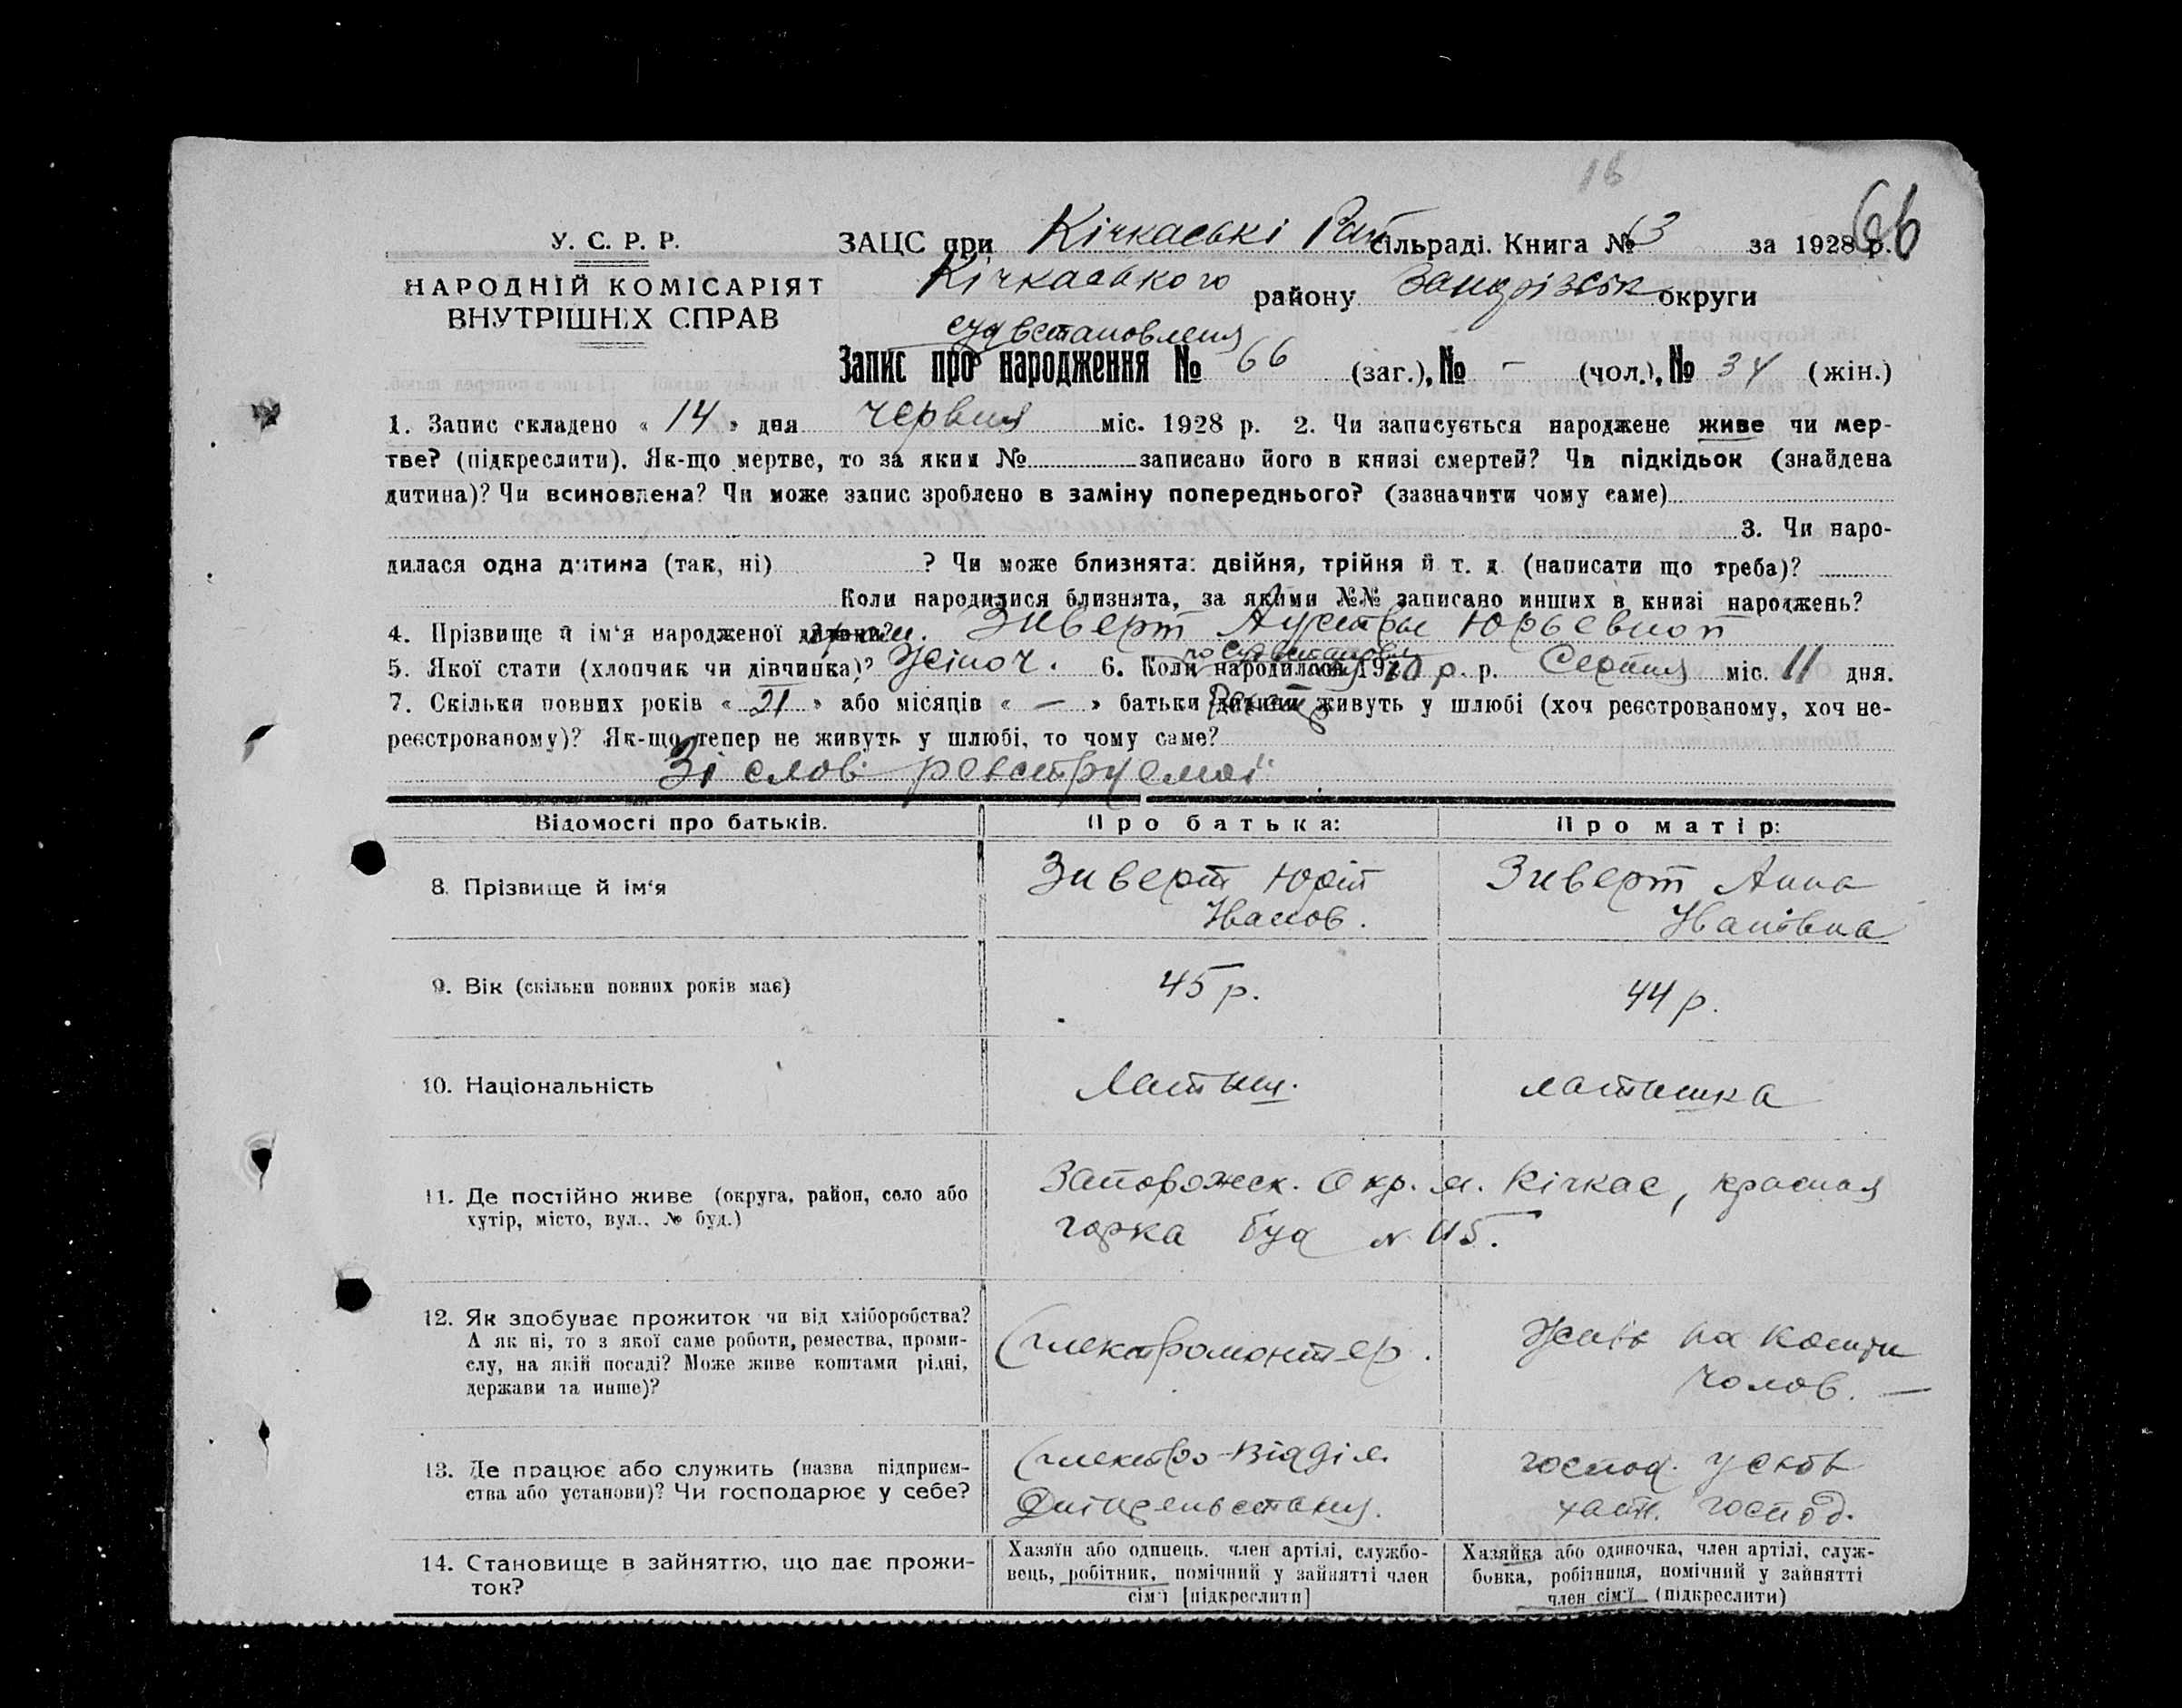 16
66
У. С. Р. Р.
НАРОДНІЙ КОМІСАРІЯТ
ВНУТРІШНІХ СПРАВ
ЗАЦС при Кічкаські Рай сільраді. Книга № 3 за 1928 р.
Кічкаського району Запорізськ округи
судвстановлення
Запис про народження № 66 (заг.), № - (чол.), № 34 (жін.)
1. Запис складено « 14 » дня червня міс. 1928 р. 2. Чи записується народжене живе чи мер-
тве? (підкреслити). Як-що мертве, то за яким № записано його в книзі смертей? Чи підкідьок (знайдена
дитина)? Чи всиновлена? Чи може запис зроблено в заміну попереднього? (зазначити чому саме)
3. Чи наро-
дилася одна дитина (так, ні) ? Чи може близнята: двійня, трійня й т. д. (написати що треба)?
Коли народилися близнята, за якими №№ записано инших в книзі народжень?
4. Прізвище й ім'я народженої дитини? Зиверт Аустры Юрьевной
5. Якої стати (хлопчик чи дівчинка)? Жіноч. 6. Коли народилася 1910 р. р. Серпня міс. 11 дня.
по судвстановл
7. Скільки повних років « 21 » або місяців « — » батьки дитини живуть у шлюбі (хоч реєстрованому, хоч не-
реєстрованому)? Як-що тепер не живуть у шлюбі, то чому саме?
Зі слов реєструємої
Відомості про батьків. Про батька: Про матір:
8. Прізвище й ім'я Зиверт Юрій Зиверт Анна
Иванов. Иванівна
9. Вік (скільки повних років має) 45 р. 44 р.
10. Національність Латыш. латышка
11. Де постійно живе (округа, район, село або
хутір, місто, вул., № буд.)
Запорожск. Окр. м. Кічкас, красная
горка буд № 115.
12. Як здобуває прожиток чи від хліборобства?
А як ні, то з якої саме роботи, ремества, проми-
слу, на якій посаді? Може живе коштами рідні,
держави та инше)?
Електромонтер.
Живе на кошти
Чолов. —
13. Де працює або служить (назва підприєм-
ства або установи)? Чи господарює у себе?
Електро-Відділ
Дніпрельстану.
господ. у своїм
хатн. господ.
14. Становище в зайняттю, що дає прожи-
ток?
Хазяїн або одинець, член артілі, службо-
вець, робітник, помічний у зайнятті член
сім'ї [підкреслити]
Хазяйка або одиночка, член артілі, служ-
бовка, робітниця, помічний у зайнятті
член сім'ї (підкреслити)